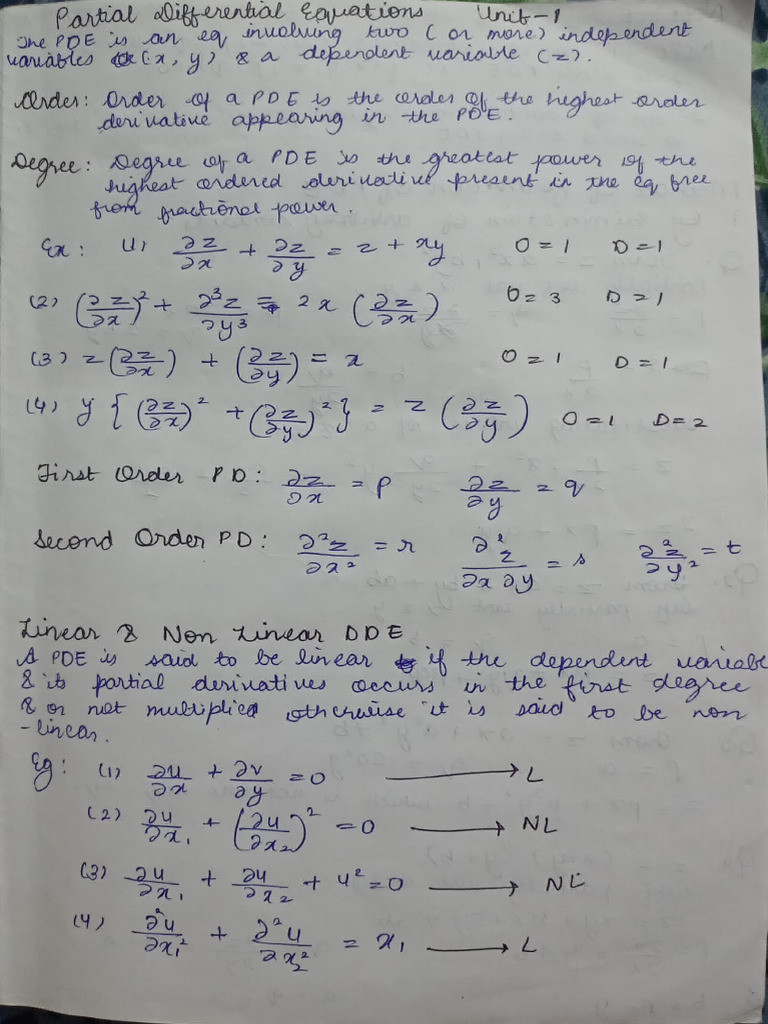 Partial Differential Equations Unit-1
The PDE is an eq involving two (or more) independent
variables (x, y) & a dependent variable (z).
Order: Order of a PDE is the order of the highest order
derivative appearing in the PDE.
Degree: Degree of a PDE is the greatest power of the
highest ordered derivative present in the eq free
from fractional power.
Ex: (1) ∂z/∂x + ∂z/∂y = z + xy O = 1 D = 1
(2) (∂z/∂x)² + ∂³z/∂y³ = 2x (∂z/∂x) O = 3 D = 1
(3) z(∂z/∂x) + (∂z/∂y) = x O = 1 D = 1
(4) y {(∂z/∂x)² + (∂z/∂y)²} = z (∂z/∂y) O = 1 D = 2
First Order PD: ∂z/∂x = p ∂z/∂y = q
Second Order PD: ∂²z/∂x² = r ∂²z/∂x ∂y = s ∂²z/∂y² = t
Linear & Non Linear DDE
A PDE is said to be linear if the dependent variable
& its partial derivatives occurs in the first degree
& or not multiplied otherwise it is said to be non
-linear.
Eg: (1) ∂u/∂x + ∂v/∂y = 0 → L
(2) ∂u/∂x₁ + (∂u/∂x₂)² = 0 → NL
(3) ∂u/∂x₁ + ∂u/∂x₂ + u² = 0 → NL
(4) ∂²u/∂x₁² + ∂²u/∂x₂² = x₁ → L